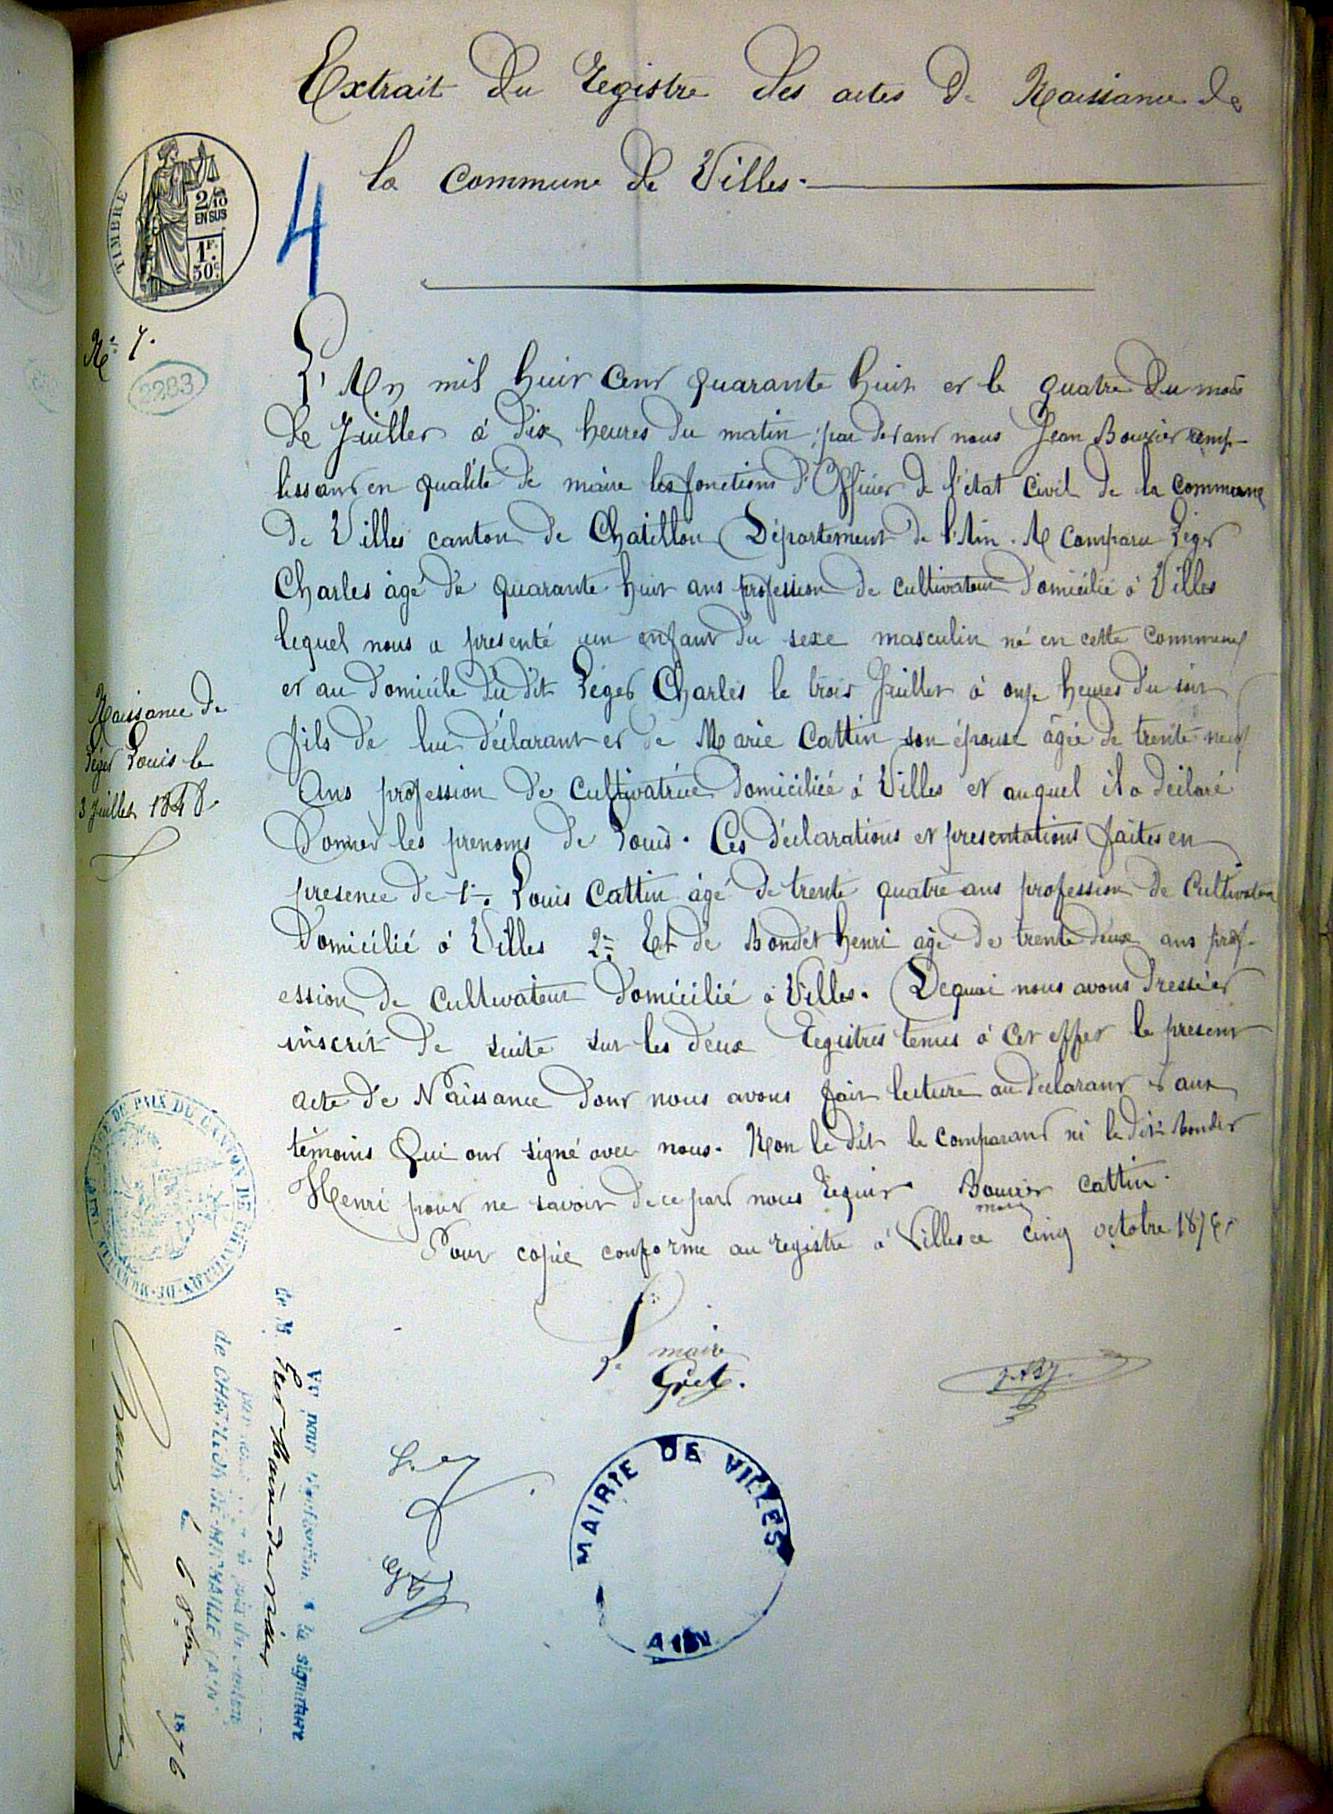 Extrait du Registre des actes de Naissance de
la commune de Villes.
TIMBRE
2/10
EN SUS
1F.
50c.
4
No. 7.
2283
L'An mil huit cent quarante huit et le quatre du mois
de Juillet à dix heures du matin, par devant nous Jean Bouvier remp-
lissant en qualité de maire les fonctions d'Officier de l'état civil de la commune
de Villes canton de Chatillon Département de l'Ain. A comparu Léger
Charles âgé de quarante huit ans profession de cultivateur domicilié à Villes
lequel nous a presenté un enfant du sexe masculin né en cette commune
et au domicile du dit Léger Charles le trois Juillet à onze heures du soir
fils de lui déclarant et de Marie Cattin son épouse âgée de trente neuf
Ans profession de cultivatrice domiciliée à Villes et auquel il a déclaré
Donner les prenoms de Louis. Ces déclarations et presentations faites en
presence de 1o. Louis Cattin âgé de trente quatre ans profession de Cultivateur
Domicilié à Villes 2o. Et de Bondet henri âgé de trente deux ans prof-
ession de cultivateur domicilié à Villes. De quoi nous avons dressé et
inscrit de suite sur les deux registres tenus à cet effet le present
acte de Naissance dont nous avons fait lecture au déclarant et aux
témoins Qui ont signé avec nous. Non le dit le comparant ni le dit Bondet
Henri pour ne savoir de ce part nous requis Bouvier cattin.
maire
Pour copie conforme au registre à Villes ce cinq octobre 1876.
Naissance de
Léger Louis le
3 Juillet 1848.
Le maire
MAIRIE DE VILLES
AIN
DE PAIX DU CANTON DE CHATILLON-DE-MICHAILLE
(AIN)
Vu pour légalisation de la signature
de M. maire de Villes
par nous juge de paix du canton
de CHATILLON-DE-MICHAILLE (AIN)
le 6 8bre 1876